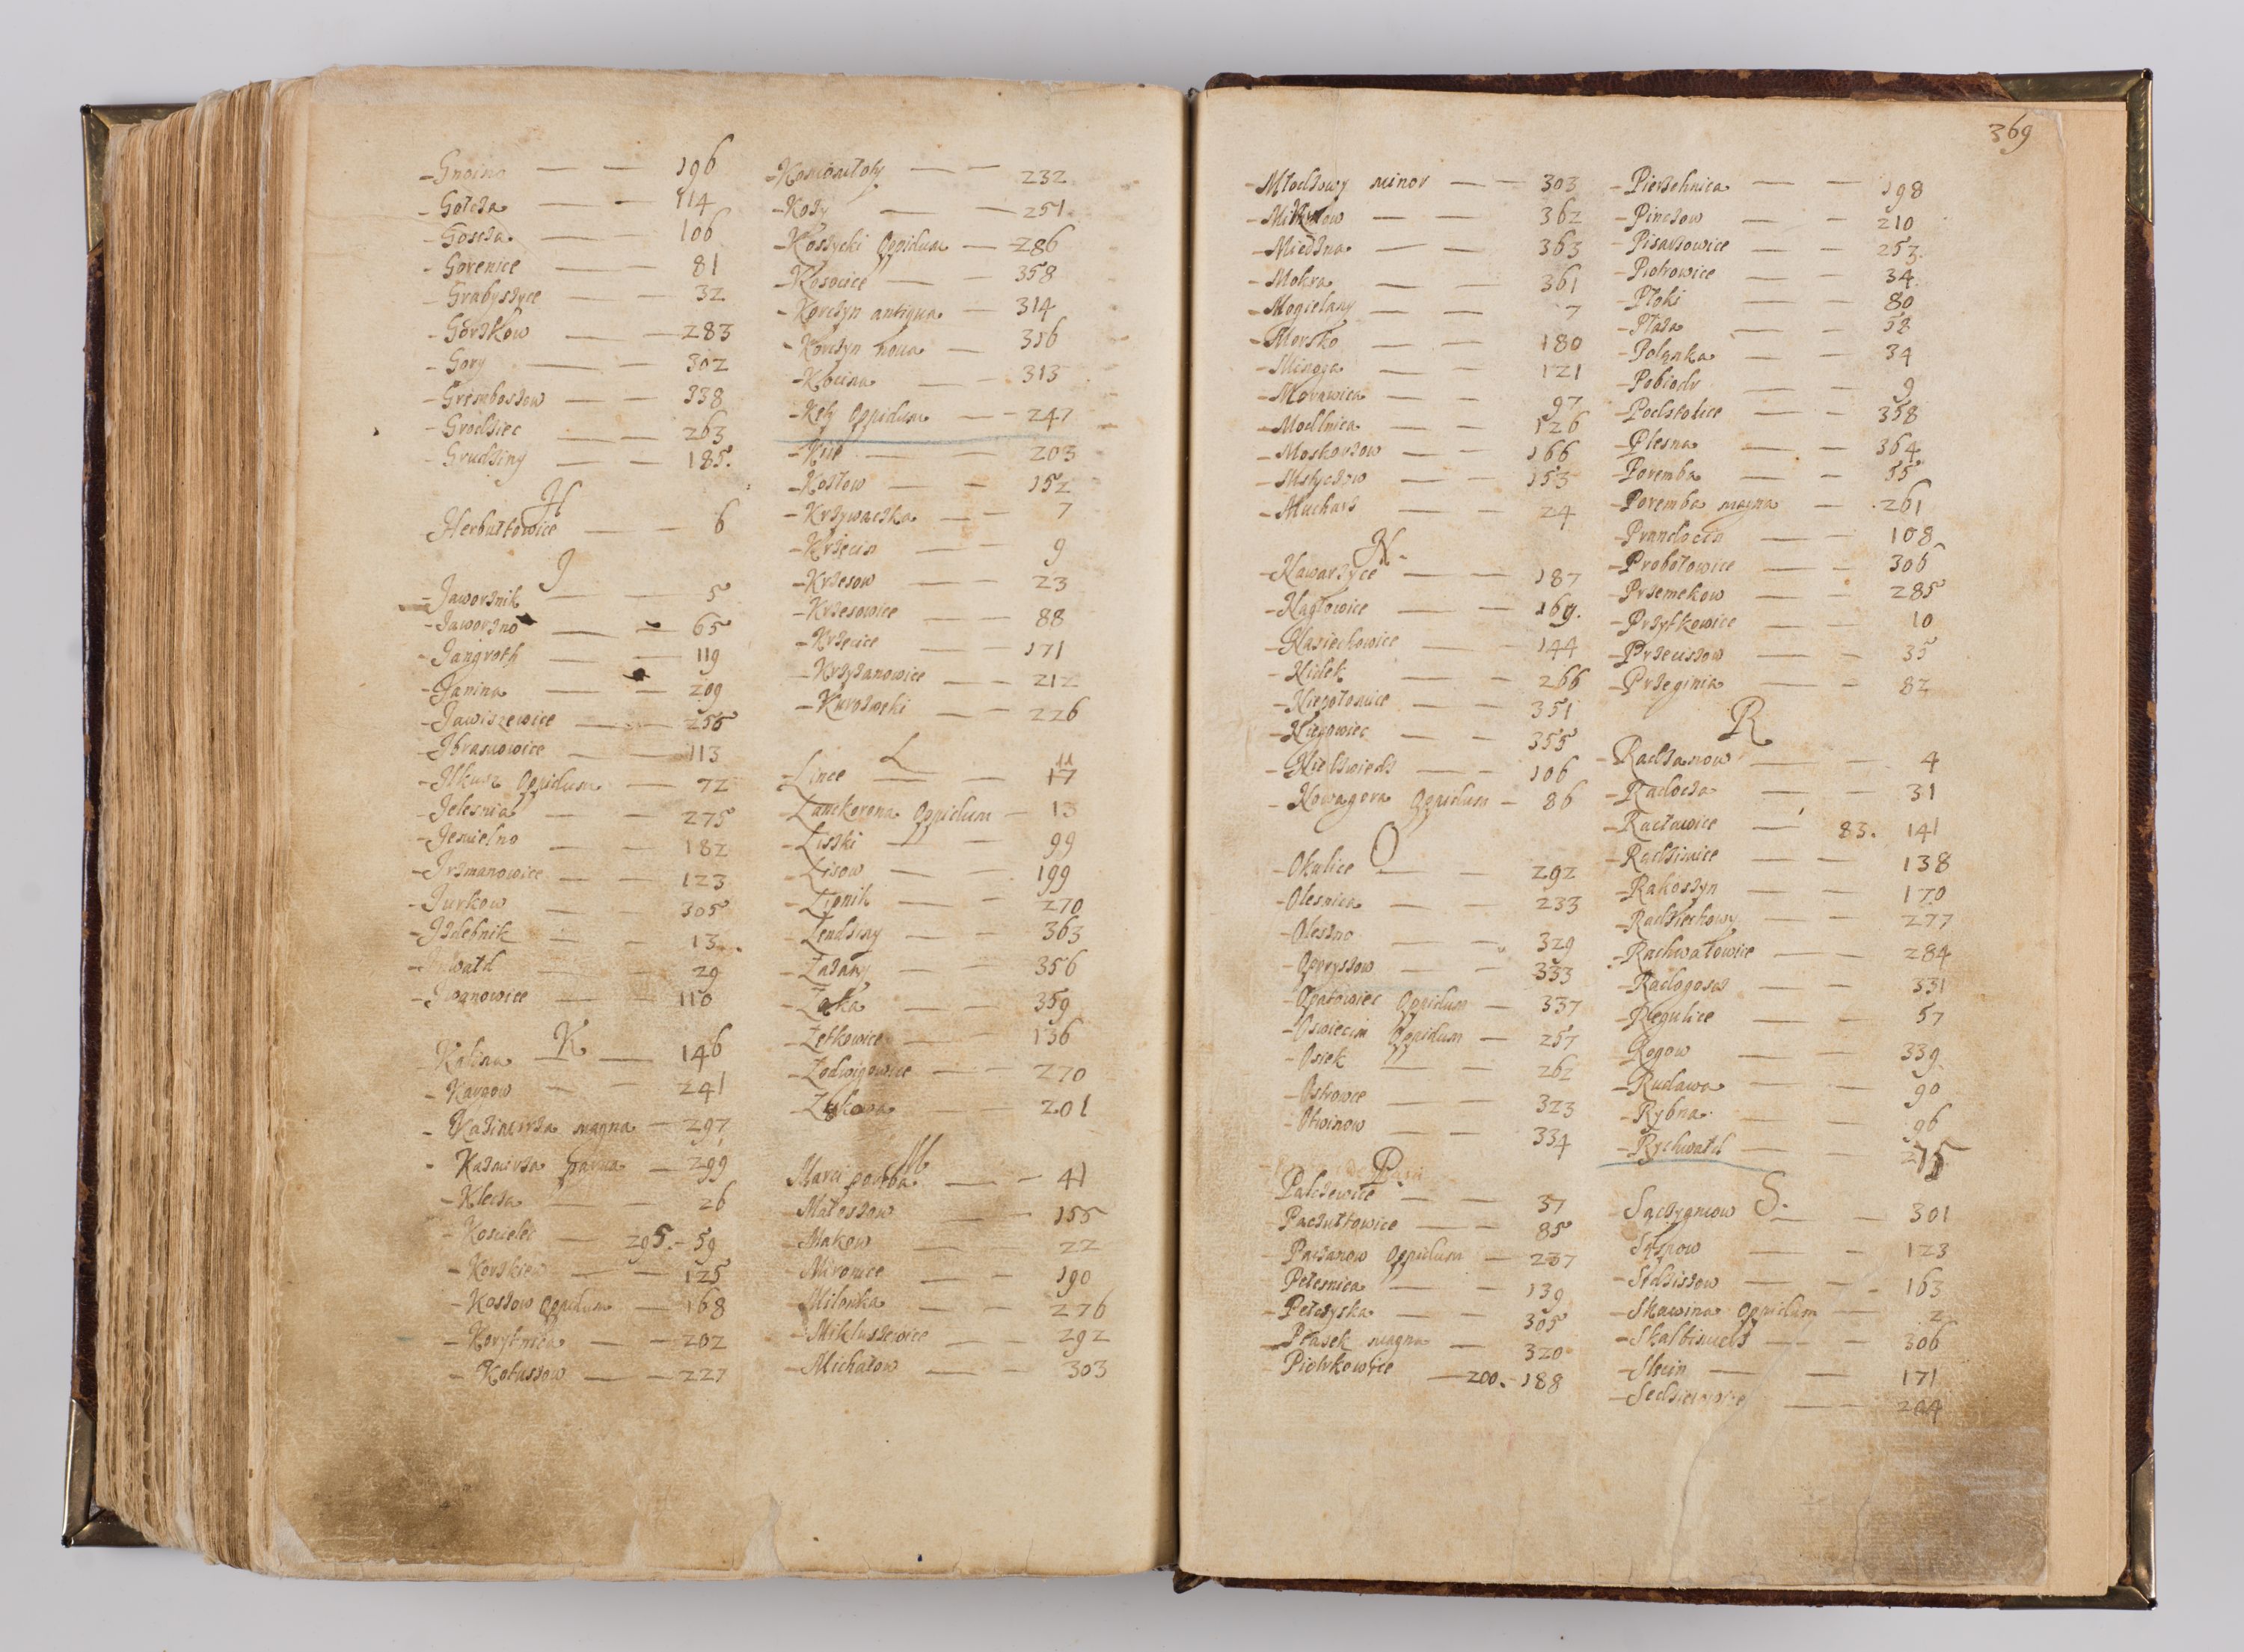 Gnoino — — 196
Gołcza — — 114
Goscza — — 106
Gorenice — — 81
Grabyszyce — — 32
Gorzkow — — 283
Gory — — 302
Gremboszow — — 338
Grodziec — — 263
Grudziny — — 185.
H
Herbułtowice — — 6
J
Jaworznik — — 5
Jaworzno — — 65
Jangroth — — 119
Janina — — 209
Jawiszewice — — 255
Jbramowice — — 113
Jlkusz Oppidum — 72
Jelesnia — — 275
Jemielno — — 182
Jrzmanowice — — 123
Jurkow — — 305
Jzdebnik — — 13.
— — 29
Jwanowice — — 110
K
Kalina — — 146
Kargow — — 241
Kazimirza magna — 297
Kazmirza parua — 299
Klecza — — 26
Koscielec — 295. — 59
Korzkiew — — 125
Kossow Oppidum — 168
Korytnica — — 202
Kotuszow — — 227
Koniomłoty — — 232
Kozy — — 251
Koszycki Oppidum — 286
Kosocice — — 358
Korczyn antiqua — 314
Korczyn noua — 316
Kocina — — 313
Kęty Oppidum — — 247
Kiie — — 203
Kozłow — — 152
Krzywaczka — — 7
Krzęcin — — 9
Krzesow — — 23
Krzesowice — — 88
Krzęcice — — 171
Krzyzanowice — — 212
Kurozwęki — — 226
L
Lince — — 11
17
Lanckorona Oppidum — 13
Liszki — — 99
Lisow — — 199
Lipnik — — 270
Lendziny — — 363
Łazany — — 356
Łąka — — 359
Łetkowice — — 136
Lodwigowice — — 270
Łukowa — — 201
M
Marci poręba — — 41
Małoszow — — 155
Makow — — 22
Mironice — — 190
Milowka — — 276
Mikluszowice — — 292
Michałow — — 303
369
Młodzowy minor — — 303
Mikołow — — 362
Miedzna — — 363
Mokra — — 361
Mogielany — — 7
Morsko — — 180
Minoga — — 121
Morawica — — 97
Modlnica — — 126
Moskorzow — — 166
Mstyczow — — 153
Mucharz — — 24
N.
Nawarzyce — — 187
Nagłowice — — 169.
Nasiechowice — — 144
Nidek — — 266
Niepołomice — — 351
Niegowiec — — 355
Niedzwiedz — — 106
Nowagora Oppidum — 86
O
Okulice — — 292
Olesnica — — 233
Oleszno — — 329
Opryszow — — 333
Opatowiec Oppidum — 337
Oswiecim Oppidum — 257
Osiek — — 262
Ostrowce — — 323
Otwinow — — 334
P.
Palczewice — — 37
Paczułtowice — — 85
Paczanow Oppidum — 237
Pełesnica — — 139
Pełczyska — — 305
Piasek magna — 320
Piotrkowice — 200. — 188
Pierzchnica — — 198
Pinczow — — 210
Pisarzowice — — 253.
Piotrowice — — 34
Płoki — — 80
Płaza — — 58
Polanka — — 34
Pobiedr — — 9
Podstolice — — 358
Plesna — — 364
Poremba — — 55
Poremba magna — 261
Prandocin — — 108
Probołowice — — 306
Przemekow — — 285
Przytkowice — — 10
Przeciszow — — 35
Przeginia — — 82
R
Radzanow — — 4
Radocza — — 31
Racławice — 83. 141
Radzimice — — 138
Rakoszyn — — 170
Radziechowy — — 277
Rachwałowice — — 284
Radogoscz — — 331
Regulice — — 57
Rogow — — 339
Rudawa — — 90
Rybna — — 96
Rychwałd — — 275
S.
Saczygniow — — 301
— — 123
Sędziszow — — 163
Skawina Oppidum — 2
Skalbimierz — — 306
Słęcin — — 171
— — 204